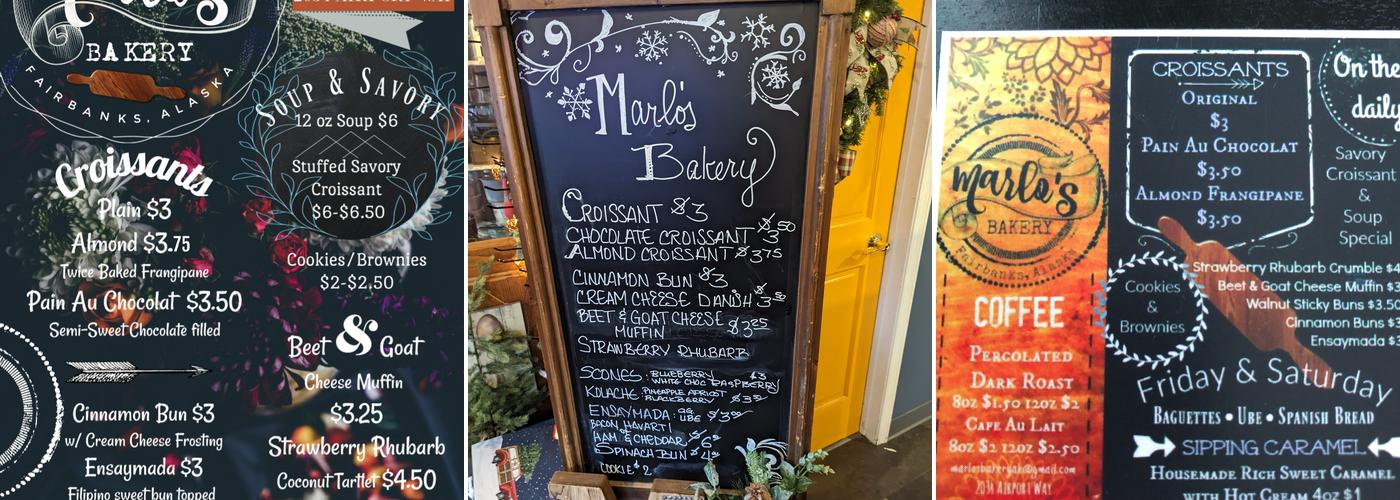 BAKERY
FAIRBANKS, ALASKA
Croissants
Plain $3
Almond $3.75
Twice Baked Frangipane
Pain Au Chocolat $3.50
Semi-Sweet Chocolate filled
Cinnamon Bun $3
w/ Cream Cheese Frosting
Ensaymada $3
Filipino sweet bun topped
SOUP & SAVORY
12 oz Soup $6
Stuffed Savory
Croissant
$6-$6.50
Cookies/Brownies
$2-$2.50
Beet & Goat
Cheese Muffin
$3.25
Strawberry Rhubarb
Coconut Tartlet $4.50
Marlo's
Bakery
CROISSANT $3
CHOCOLATE CROISSANT $3.50
ALMOND CROISSANT $3.75
CINNAMON BUN $3
CREAM CHEESE DANISH $3.50
BEET & GOAT CHEESE
MUFFIN $3.25
STRAWBERRY RHUBARB
SCONES: BLUEBERRY $3
WHITE CHOC RASPBERRY
KOLACHE: PINEAPPLE APRICOT
BLACKBERRY
ENSAYMADA: OG
UBE
BACON HAVARTI
HAM & CHEDDAR $6
SPINACH BUN
COOKIE $2
marlo's
BAKERY
Fairbanks, Alaska
COFFEE
PERCOLATED
DARK ROAST
8OZ $1.50 12OZ $2
CAFE AU LAIT
8OZ $2 12OZ $2.50
marlosbakeryak@gmail.com
2034 AIRPORT WAY
CROISSANTS
ORIGINAL
$3
PAIN AU CHOCOLAT
$3.50
ALMOND FRANGIPANE
$3.50
On the
daily
Savory
Croissant
&
Soup
Special
Cookies
&
Brownies
Strawberry Rhubarb Crumble $4
Beet & Goat Cheese Muffin $3
Walnut Sticky Buns $3.50
Cinnamon Buns $3
Ensaymada $3
Friday & Saturday
BAGUETTES • UBE • SPANISH BREAD
SIPPING CARAMEL
HOUSEMADE RICH SWEET CARAMEL
WITH HOT CREAM 4OZ $4